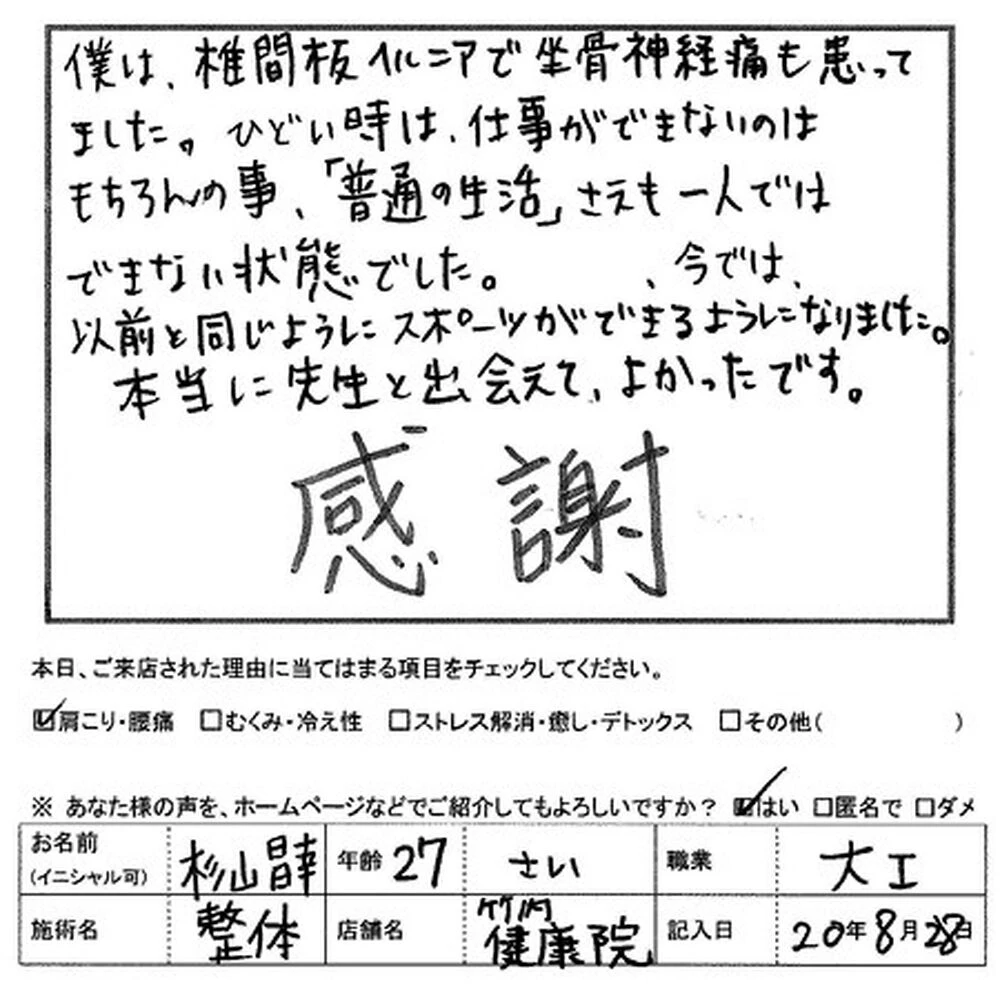 僕は、椎間板ヘルニアで坐骨神経痛も患って
ました。ひどい時は、仕事ができないのは
もちろんの事、「普通の生活」さえも一人では
できない状態でした。 、今では、
以前と同じようにスポーツができるようになりました。
本当に先生と出会えて、よかったです。
感謝
本日、ご来店された理由に当てはまる項目をチェックしてください。
☑肩こり・腰痛 □むくみ・冷え性 □ストレス解消・癒し・デトックス □その他( )
※ あなた様の声を、ホームページなどでご紹介してもよろしいですか？ ☑はい □匿名で □ダメ
お名前 (イニシャル可) 杉山 年齢 27 さい 職業 大工
施術名 整体 店舗名 竹内健康院 記入日 20年8月28日